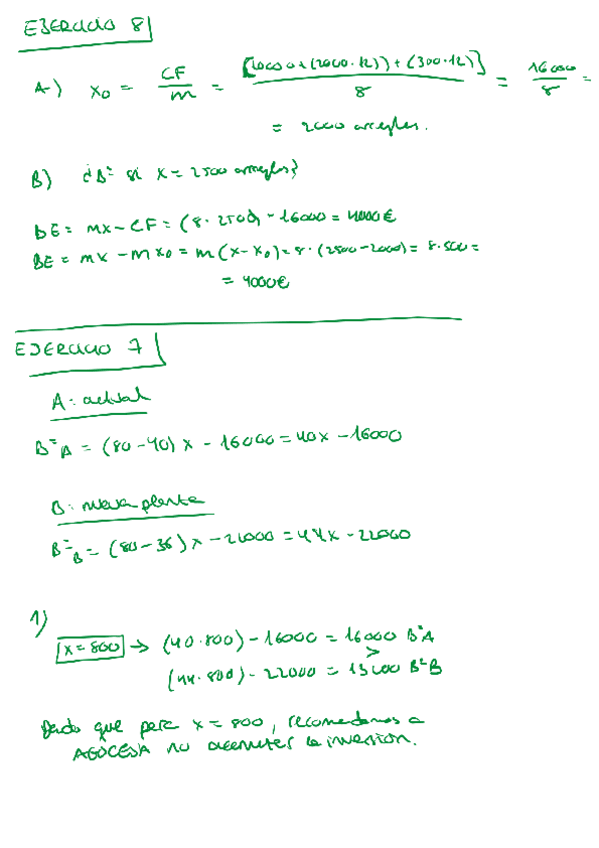 EJERCICIO 8
A-) x₀ = CF/m = [(1000 + (1000·12)) + (300·12)]/8 = 16000/8 =
= 2000 arreglos.
B) ¿Bº si x = 2500 arreglos?
BE = mx - CF = (8·2500) - 16000 = 4000€
BE = mx - mx₀ = m(x-x₀) = 8·(2500-2000) = 8·500 =
= 4000€
EJERCICIO 7
A: actual
Bº_A = (80-40)x - 16000 = 40x - 16000
B: nueva planta
Bº_B = (80-36)x - 22000 = 44x - 22000
1)
x = 800 → (40·800) - 16000 = 16000 BºA
>
(44·800) - 22000 = 13200 BºB
Dado que para x = 800, recomendamos a
AGOCESA no acometer la inversión.